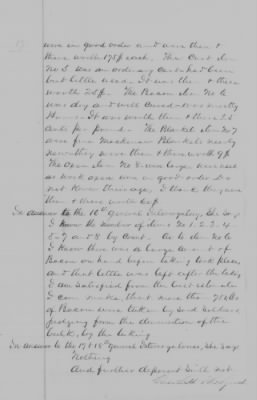 were in good order and were then &
there worth 175$ each. The Cart Item
No 5 was an ordinary Cart had been
but little used. It was then & there
worth 25$. The Bacon Item No 6
was dry and well Cured It was mostly
Hams. It was worth then & there 25
Cents per pound. The Blanket Item No 7
were fine Mackinaw Blankets nearly
new they were then & there worth 9$
The Oxen Item No 8 were large
as work oxen was in good order Do
not know their age, I think they were
then & there worth 60$
In answer to the 16th General Interrogatory, she says
I know the number of Items No 1. 2. 3. 4
5 - 7 and 8 by Count. As to Item No 6
I know there was a large amount of
Bacon on hand before taking took place,
and that little was left after the taking
I am satisfied from the best estimate
I can make, that more than lbs
of Bacon were taken by said Soldiers,
judging from the diminution of the
bulk, by the taking
In answer to the 17 & 18th General Interrogatories, she says
Nothing
And further deponent saith not